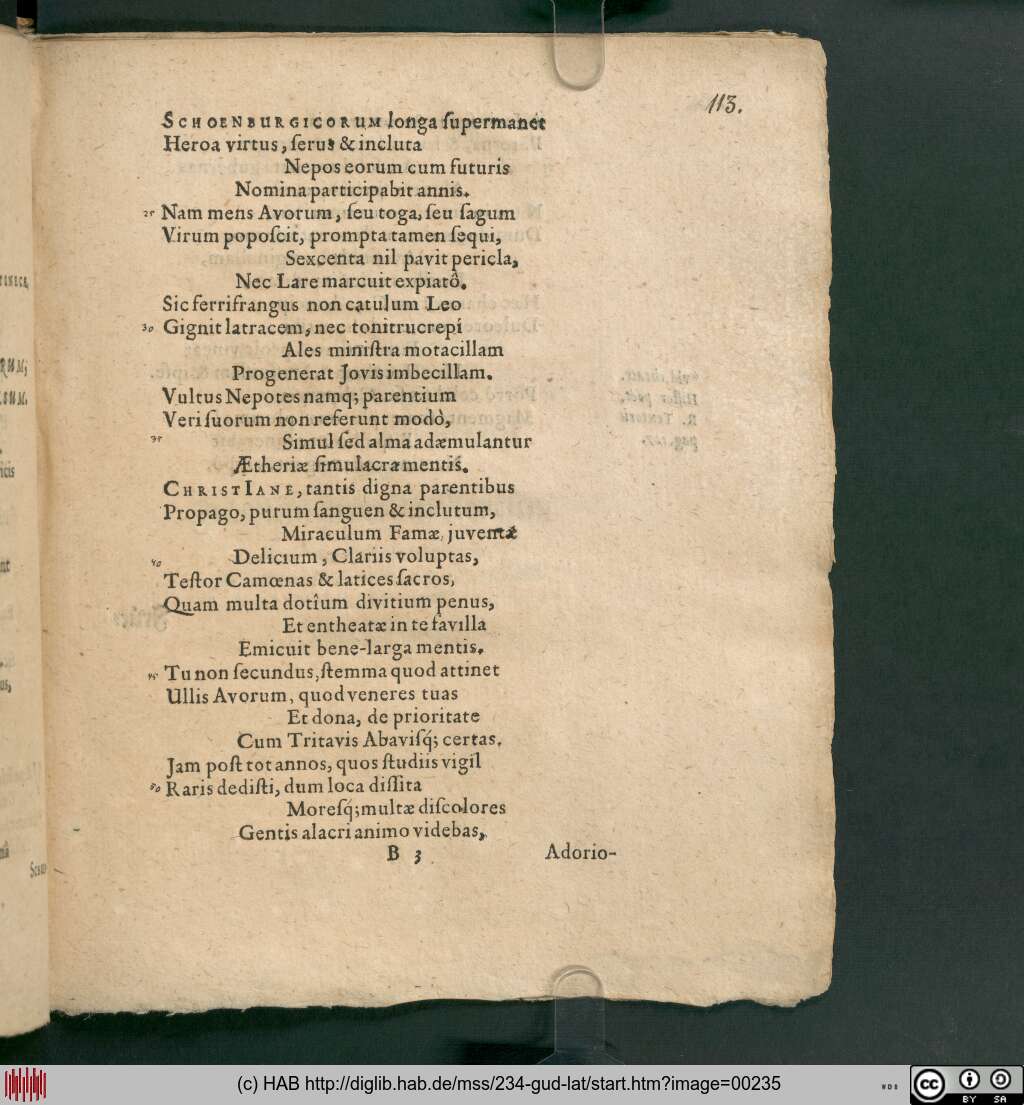 113.
SCHOENBURGICORUM longa ſupermanet
Heroa virtus, ſerus & incluta
Nepos eorum cum futuris
Nomina participabit annis.
25 Nam mens Avorum, ſeu toga, ſeu ſagum
Virum popoſcit, prompta tamen ſequi,
Sexcenta nil pavit pericla,
Nec Lare marcuit expiatô.
Sic ferrifrangus non catulum Leo
30 Gignit latracem, nec tonitrucrepi
Ales miniſtra motacillam
Progenerat Jovis imbecillam.
Vultus Nepotes namq; parentium
Veri ſuorum non referunt modò,
35 Simul ſed alma adæmulantur
Ætheriæ ſimulacra mentis.
CHRISTIANE, tantis digna parentibus
Propago, purum ſanguen & inclutum,
Miraculum Famæ, juventæ
40 Delicium, Clariis voluptas,
Teſtor Camœnas & latices ſacros,
Quam multa dotîum divitium penus,
Et entheatæ in te favilla
Emicuit bene-larga mentis.
45 Tu non ſecundus, ſtemma quod attinet
Ullis Avorum, quod veneres tuas
Et dona, de prioritate
Cum Tritavis Abaviſq́; certas.
Jam poſt tot annos, quos ſtudiis vigil
50 Raris dediſti, dum loca diſſita
Moreſq́; multæ diſcolores
Gentis alacri animo videbas,
B 3 Adorio-
(c) HAB http://diglib.hab.de/mss/234-gud-lat/start.htm?image=00235
WDB
cc BY SA